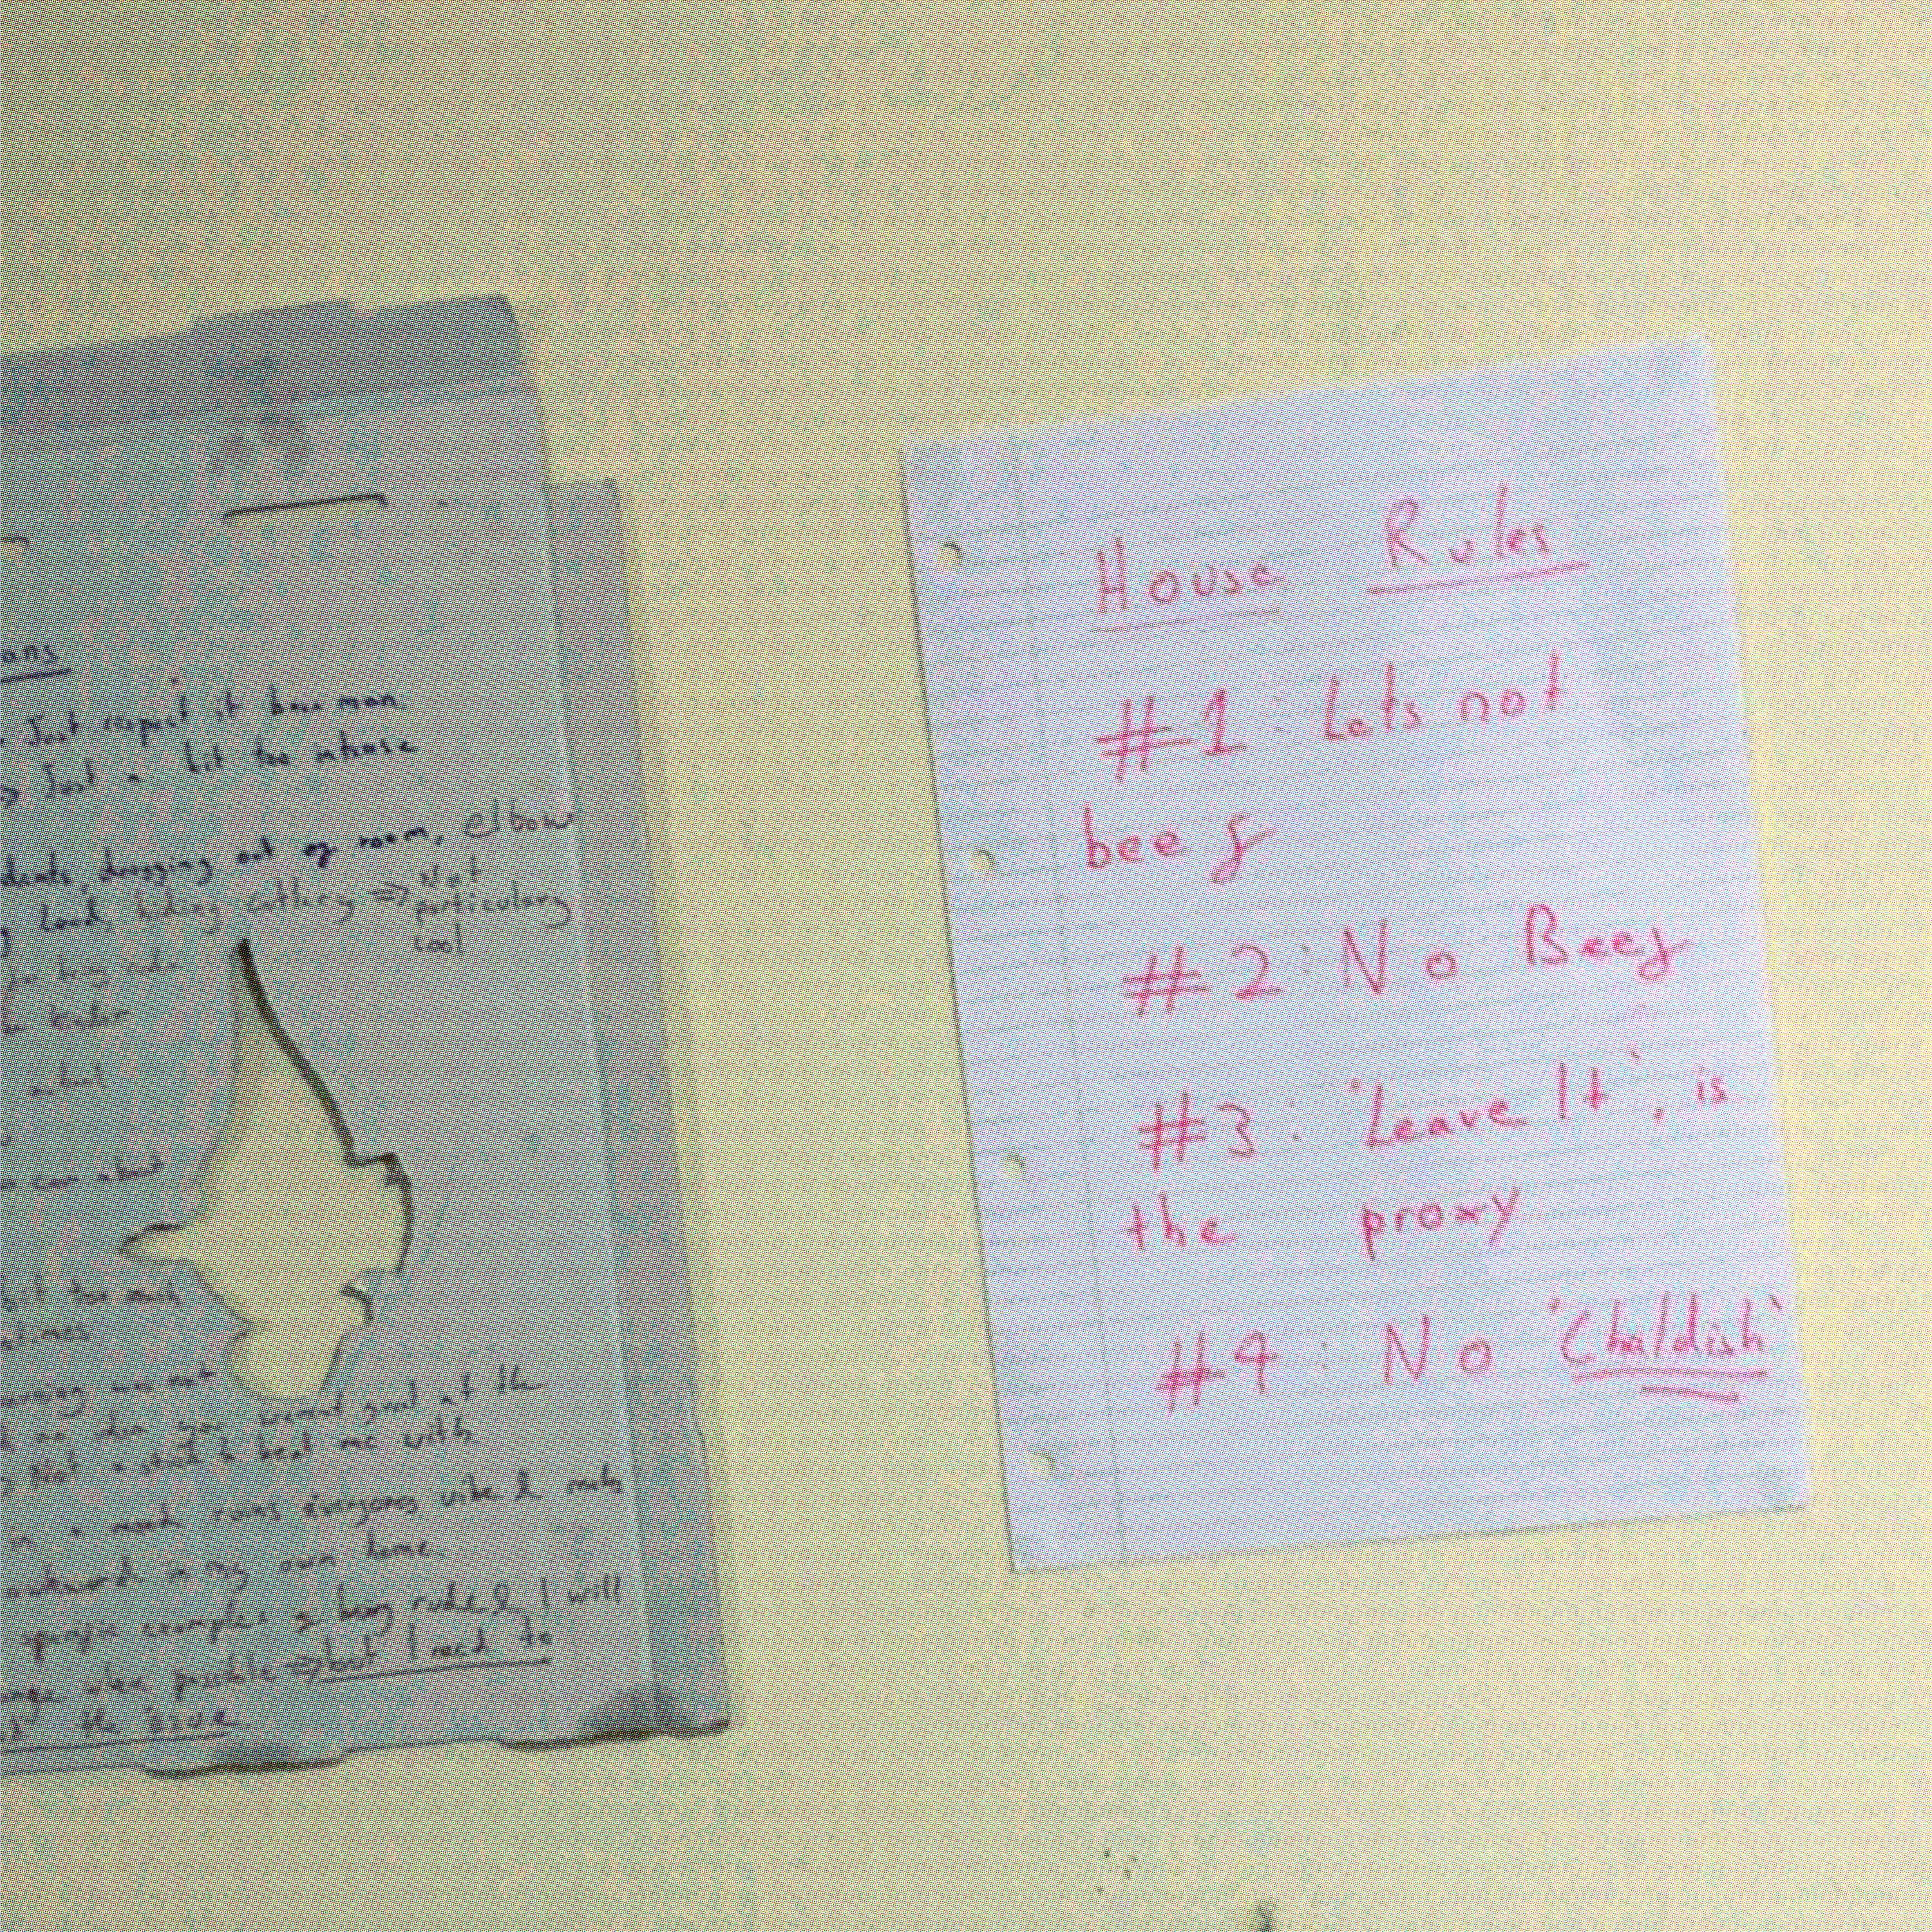 ans
Just respect it boss man.
Just a bit too intense
dents, dragging out of room, elbow
loud, hiding cutlery => Not
particulary
cool
for being rude
can about
bit too much
not
you werent good at the
=> Not a stick to beat me with.
in a mood ruins everyones vibe &
awkward in my own home.
specific examples of being rude & I will
when possible => but I need to
the issue.
House Rules
#1: Lets not
beef
#2: No Beef
#3: 'Leave It', is
the proxy
#4: No 'Chaldish'